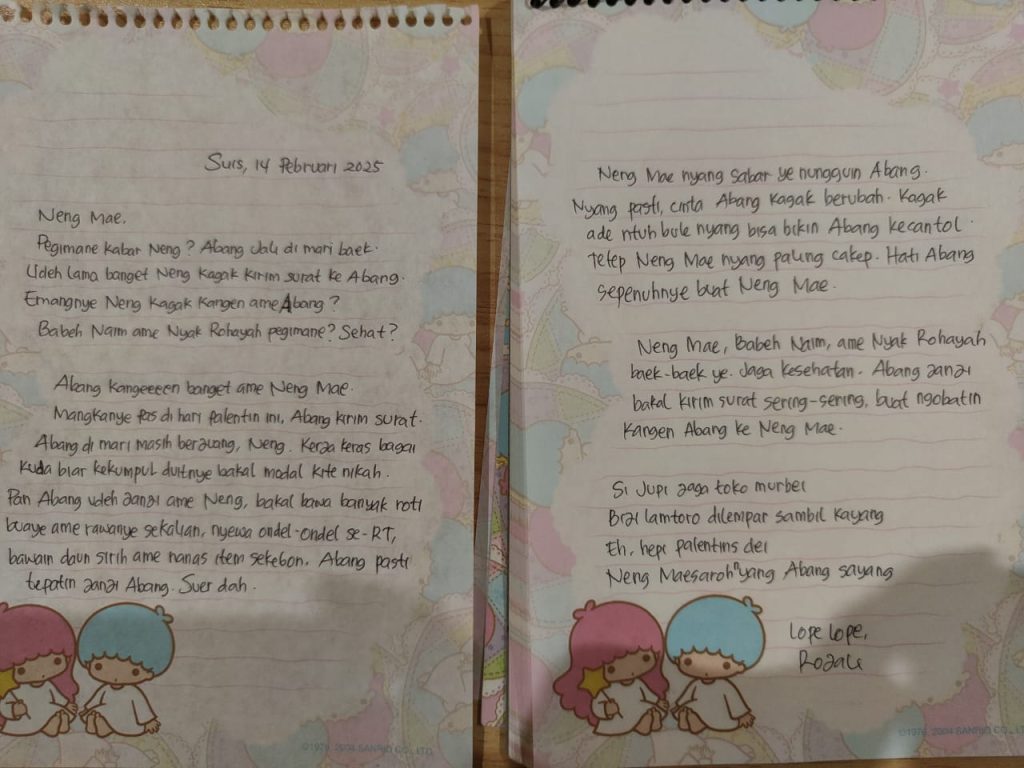 Suis, 14 Pebruari 2025
Neng Mae.
Pegimane kabar Neng? Abang Jali di mari baek.
Udeh lama banget Neng kagak kirim surat ke Abang.
Emangnye Neng kagak kangen ame Abang?
Babeh Naim ame Nyak Rohayah pegimane? Sehat?
Abang kangeeeen banget ame Neng Mae.
Mangkanye pas di hari palentin ini, Abang kirim surat.
Abang di mari masih berjuang, Neng. Kerja keras bagai
kuda biar kekumpul duitnye bakal modal kite nikah.
Pan Abang udeh janji ame Neng, bakal bawa banyak roti
buaye ame rawanye sekalian, nyewa ondel-ondel se-RT,
bawain daun sirih ame nanas item sekebon. Abang pasti
tepatin janji Abang. Suer dah.
©1976, 2004 SANRIO CO., LTD.
Neng Mae nyang sabar ye nungguin Abang.
Nyang pasti, cinta Abang kagak berubah. Kagak
ade ntuh bule nyang bisa bikin Abang kecantol.
Tetep Neng Mae nyang paling cakep. Hati Abang
sepenuhnye buat Neng Mae.
Neng Mae, Babeh Naim, ame Nyak Rohayah
baek-baek ye. Jaga kesehatan. Abang janji
bakal kirim surat sering-sering, buat ngobatin
kangen Abang ke Neng Mae.
Si Jupi jaga toko murbei
Biji lamtoro dilempar sambil kayang
Eh, hepi palentins dei
Neng Maesaroh nyang Abang sayang
Lope lope,
Rojali
©1976, 2004 SANRIO CO., LTD.